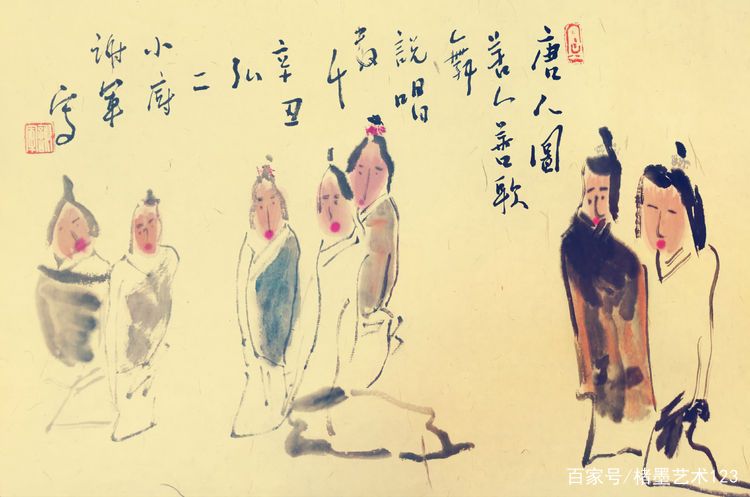 唐人圖
善人善歌
舞
說唱
辛丑
弘
二
小廚
謝軍
寫
百家号/楮墨艺术123